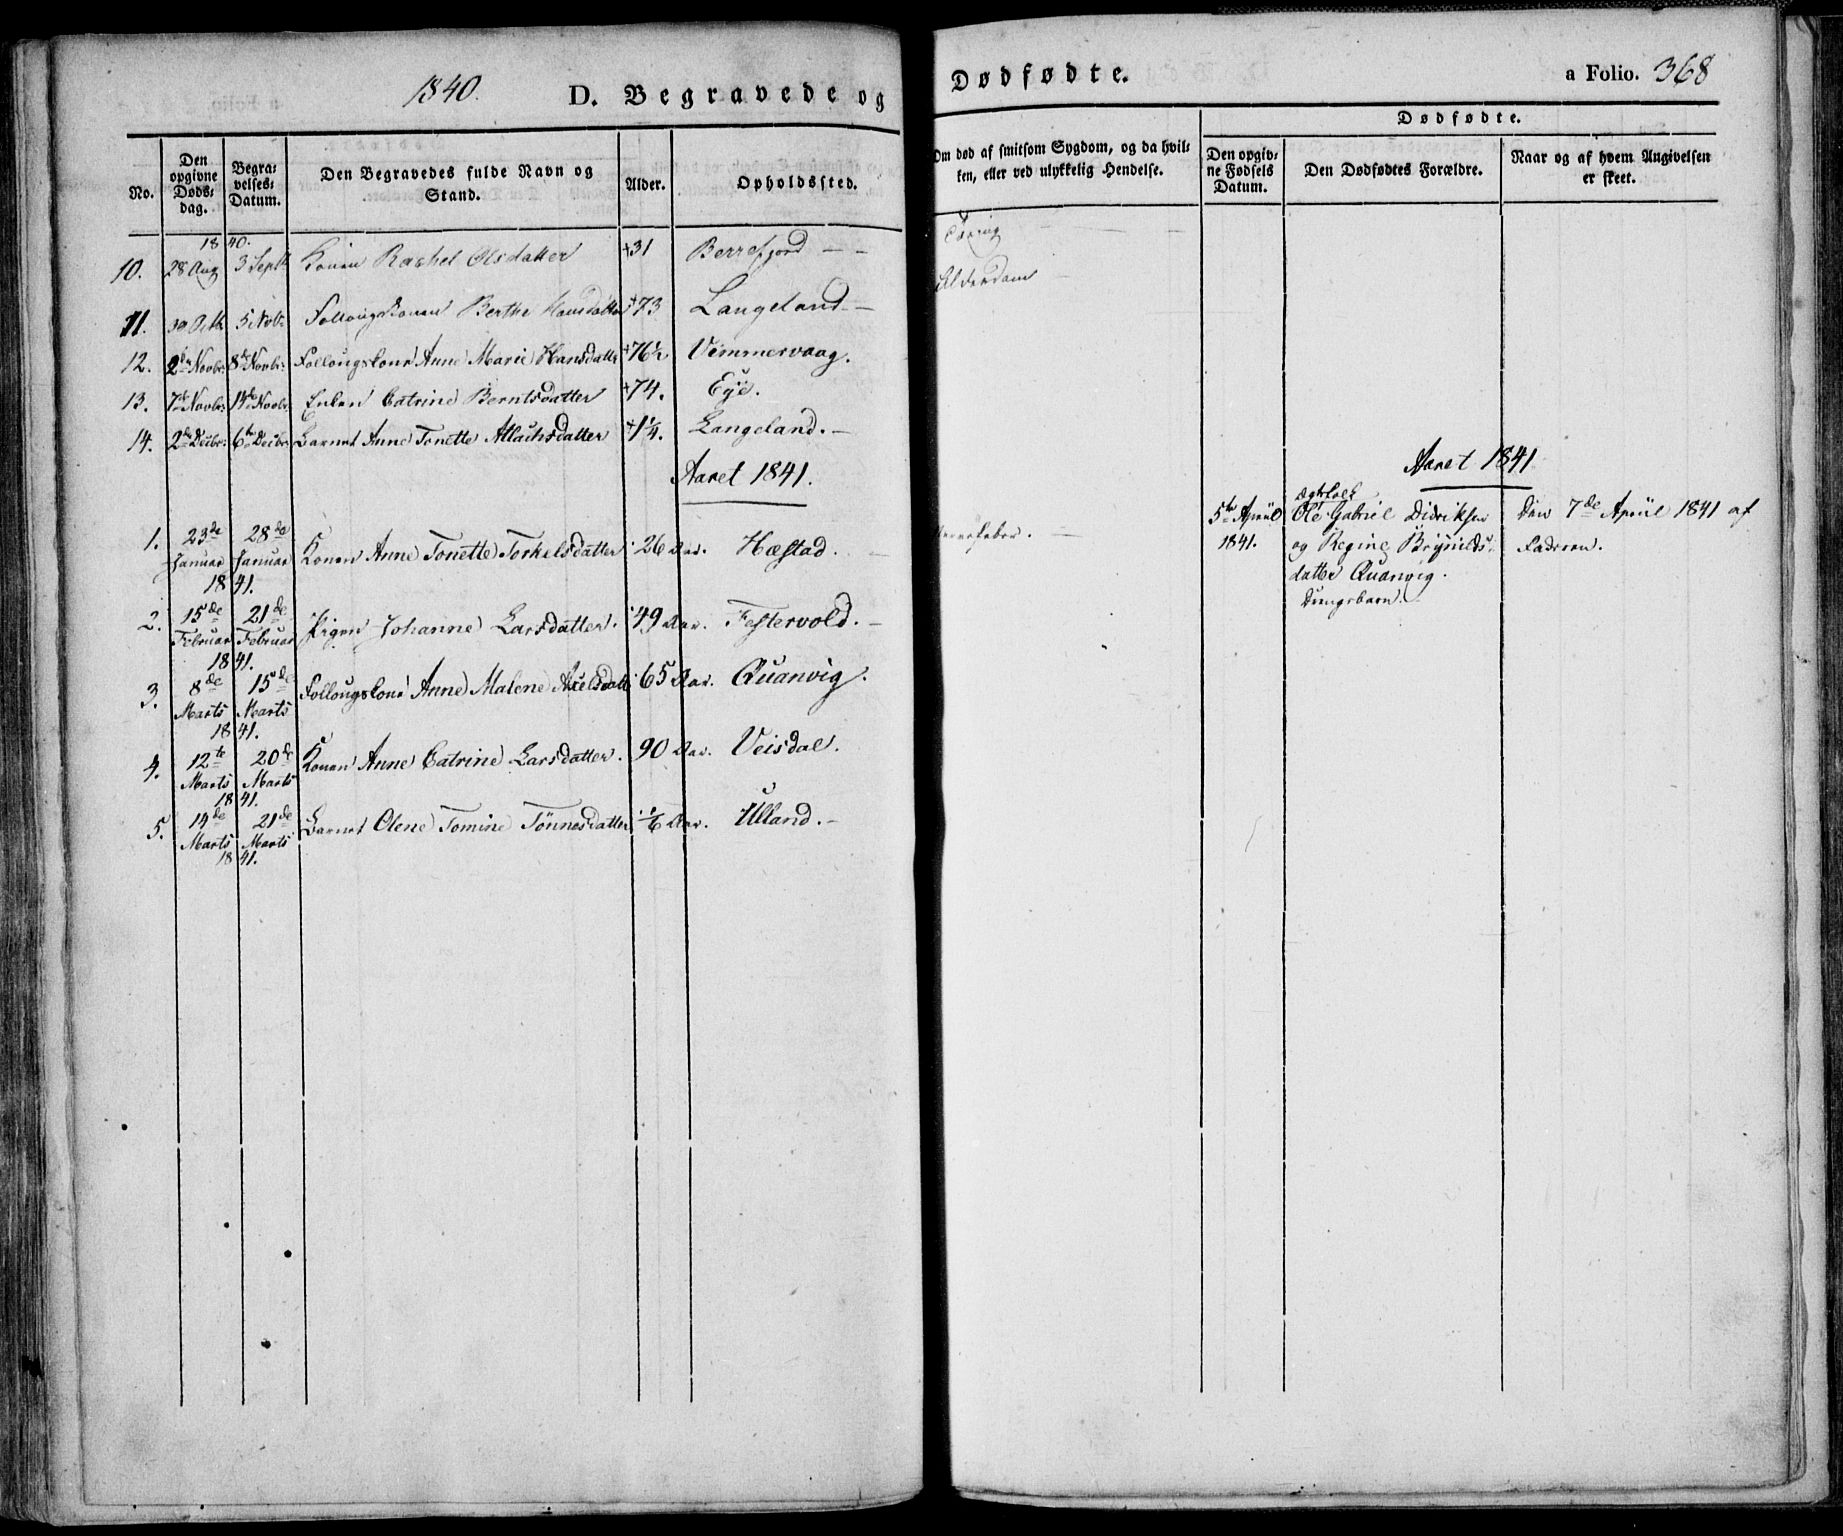 1840. D. Begravede og
No. Den opgivne Døds: dag. Begra: velses: Datum. Den Begravedes fulde Navn og Stand. Alder. Opholdssted.
1840.
10. 28 Aug 3 Septb Konen Rachel Olsdatter +31 Berrefjord — —
11. 30 Octb 5 Novbr Follougskonen Berthe Hansdatter +73 Langeland —
12. 2de Novbr: 8de Novbr: Follougskone Anne Marie Hansdatter +76½ Vimmervaag.
13. 7de Novbr: 14de Novbr Enken Catrine Berntsdatter +74. Eye.
14. 2de Decbr: 6te Decbr: Barnet Anne Tonette Atlachsdatter +1¼. Langeland. —
Aaret 1841.
1. 23de Januar 28de Januar Konen Anne Tonette Torkelsdatter 26 Aar. Hæstad. —
1841.
2. 15de Februar 21de Februar Pigen Johanne Larsdatter. 49 Aar. Festervold. —
1841.
3. 8de Marts 15de Marts Follougskone Anne Malene Axelsdatt 65 Aar. Quanvig.
1841.
4. 12te Marts 20de Marts Konen Anne Catrine Larsdatter. 90 Aar. Veisdal.
1841.
5. 14de Marts 21de Marts Barnet Olene Tomine Tönnesdatter 1/6 Aar. Ulland. —
1841.
Dødfødte. a Folio. 368
Om død af smitsom Sygdom, og da hvil: ken, eller ved ulykkelig Hendelse.
Dødfødte.
Den opgiv: ne Fødsels Datum. Den Dødfødtes Forældre. Naar og af hvem Angivelsen er skeet.
Alderdom
Aaret 1841
Ægtefolk
5te April Ole Gabriel Didriksen Den 7de April 1841 af
1841. og Regine Brynilds: Faderen.
datter Quanvig.
Drengebarn.